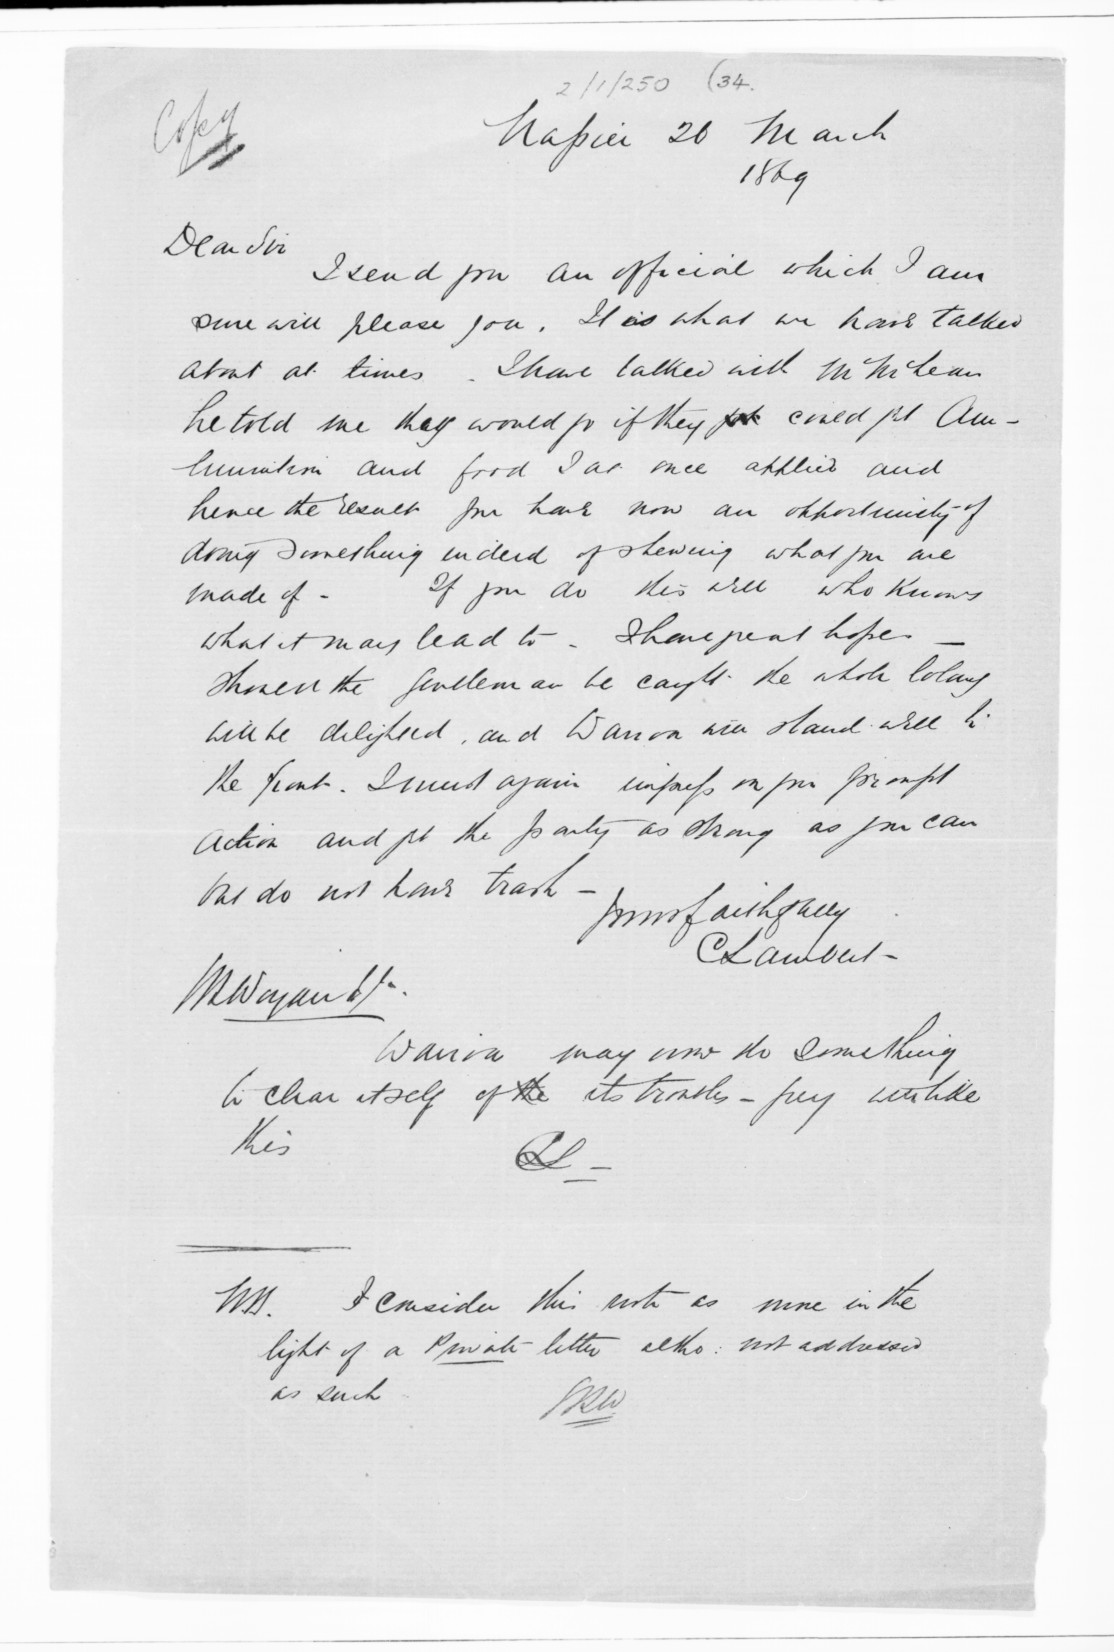 2/1/250 (34.
Copy
Napier 20 March
1869
Dear Sir
I send you an official which I am
sure will please you. It is what we have talked
about at times. I have talked with Mr McLean
he told me they would go if they could get Am-
munition and food I at once applied and
hence the result you have now an opportunity of
doing something indeed of shewing what you are
made of - If you do this well who knows
what it may lead to - I have great hopes -
Should the Gentleman be caught the whole Colony
will be delighted, and Wairoa will stand well to
the front. I must again impress on you prompt
action and get the party as strong as you can
but do not have trash -
Yours faithfully
C Lambert -
Wairoa may now do something
to clear itself of the its troubles - pray
this
CL -
NB. I consider this note as more in the
light of a Private letter altho: not addressed
as such